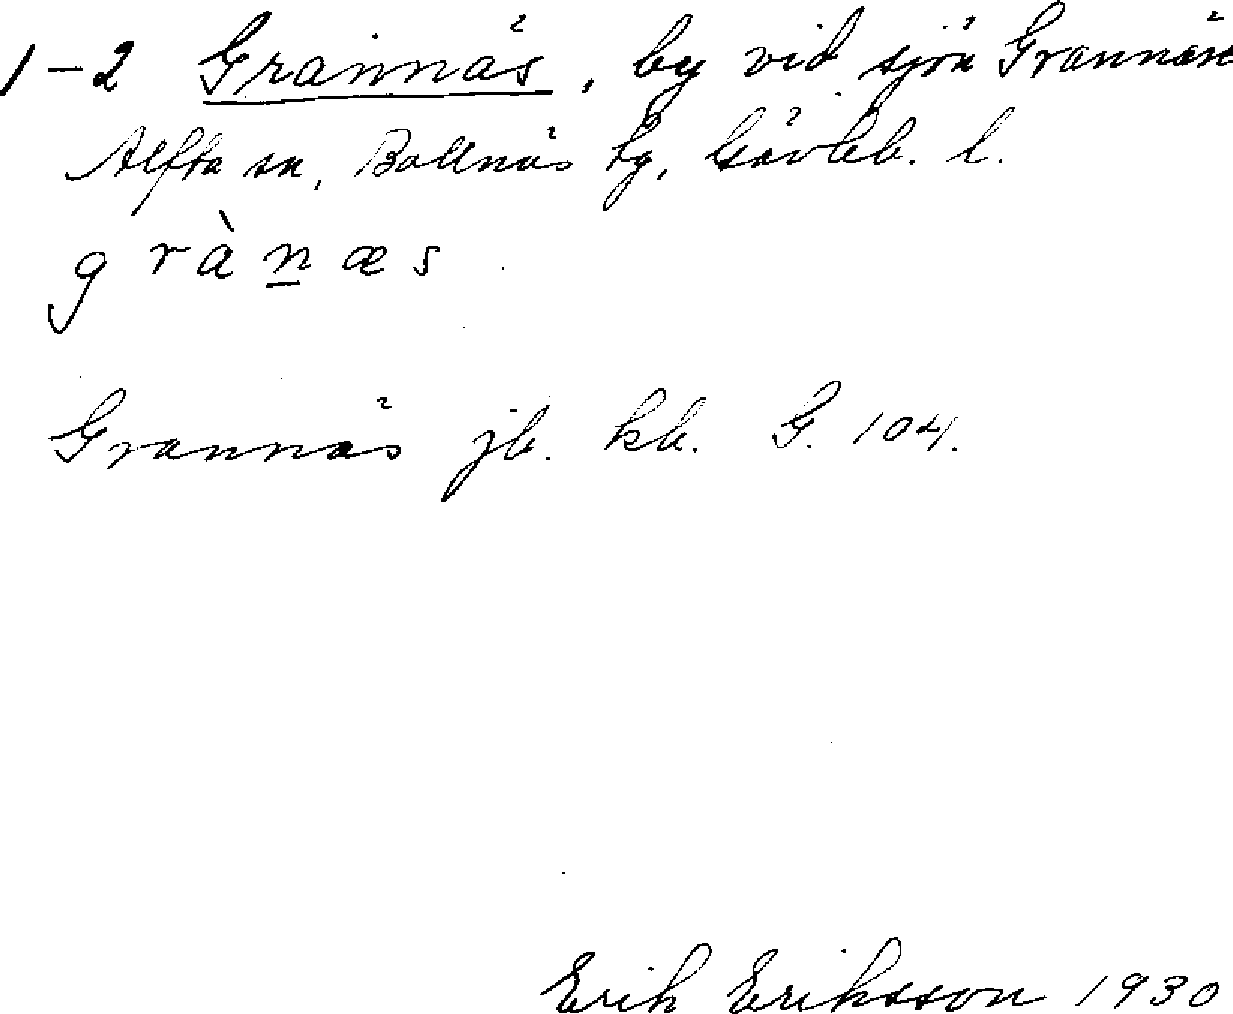 1-2 Grannäs, by vid sjön Grannäsn
Alfta sn, Bollnäs tg, Gävleb. l.
g r à n æ s
Grannäs jb. kb. G. 104.
Erik Eriksson 1930